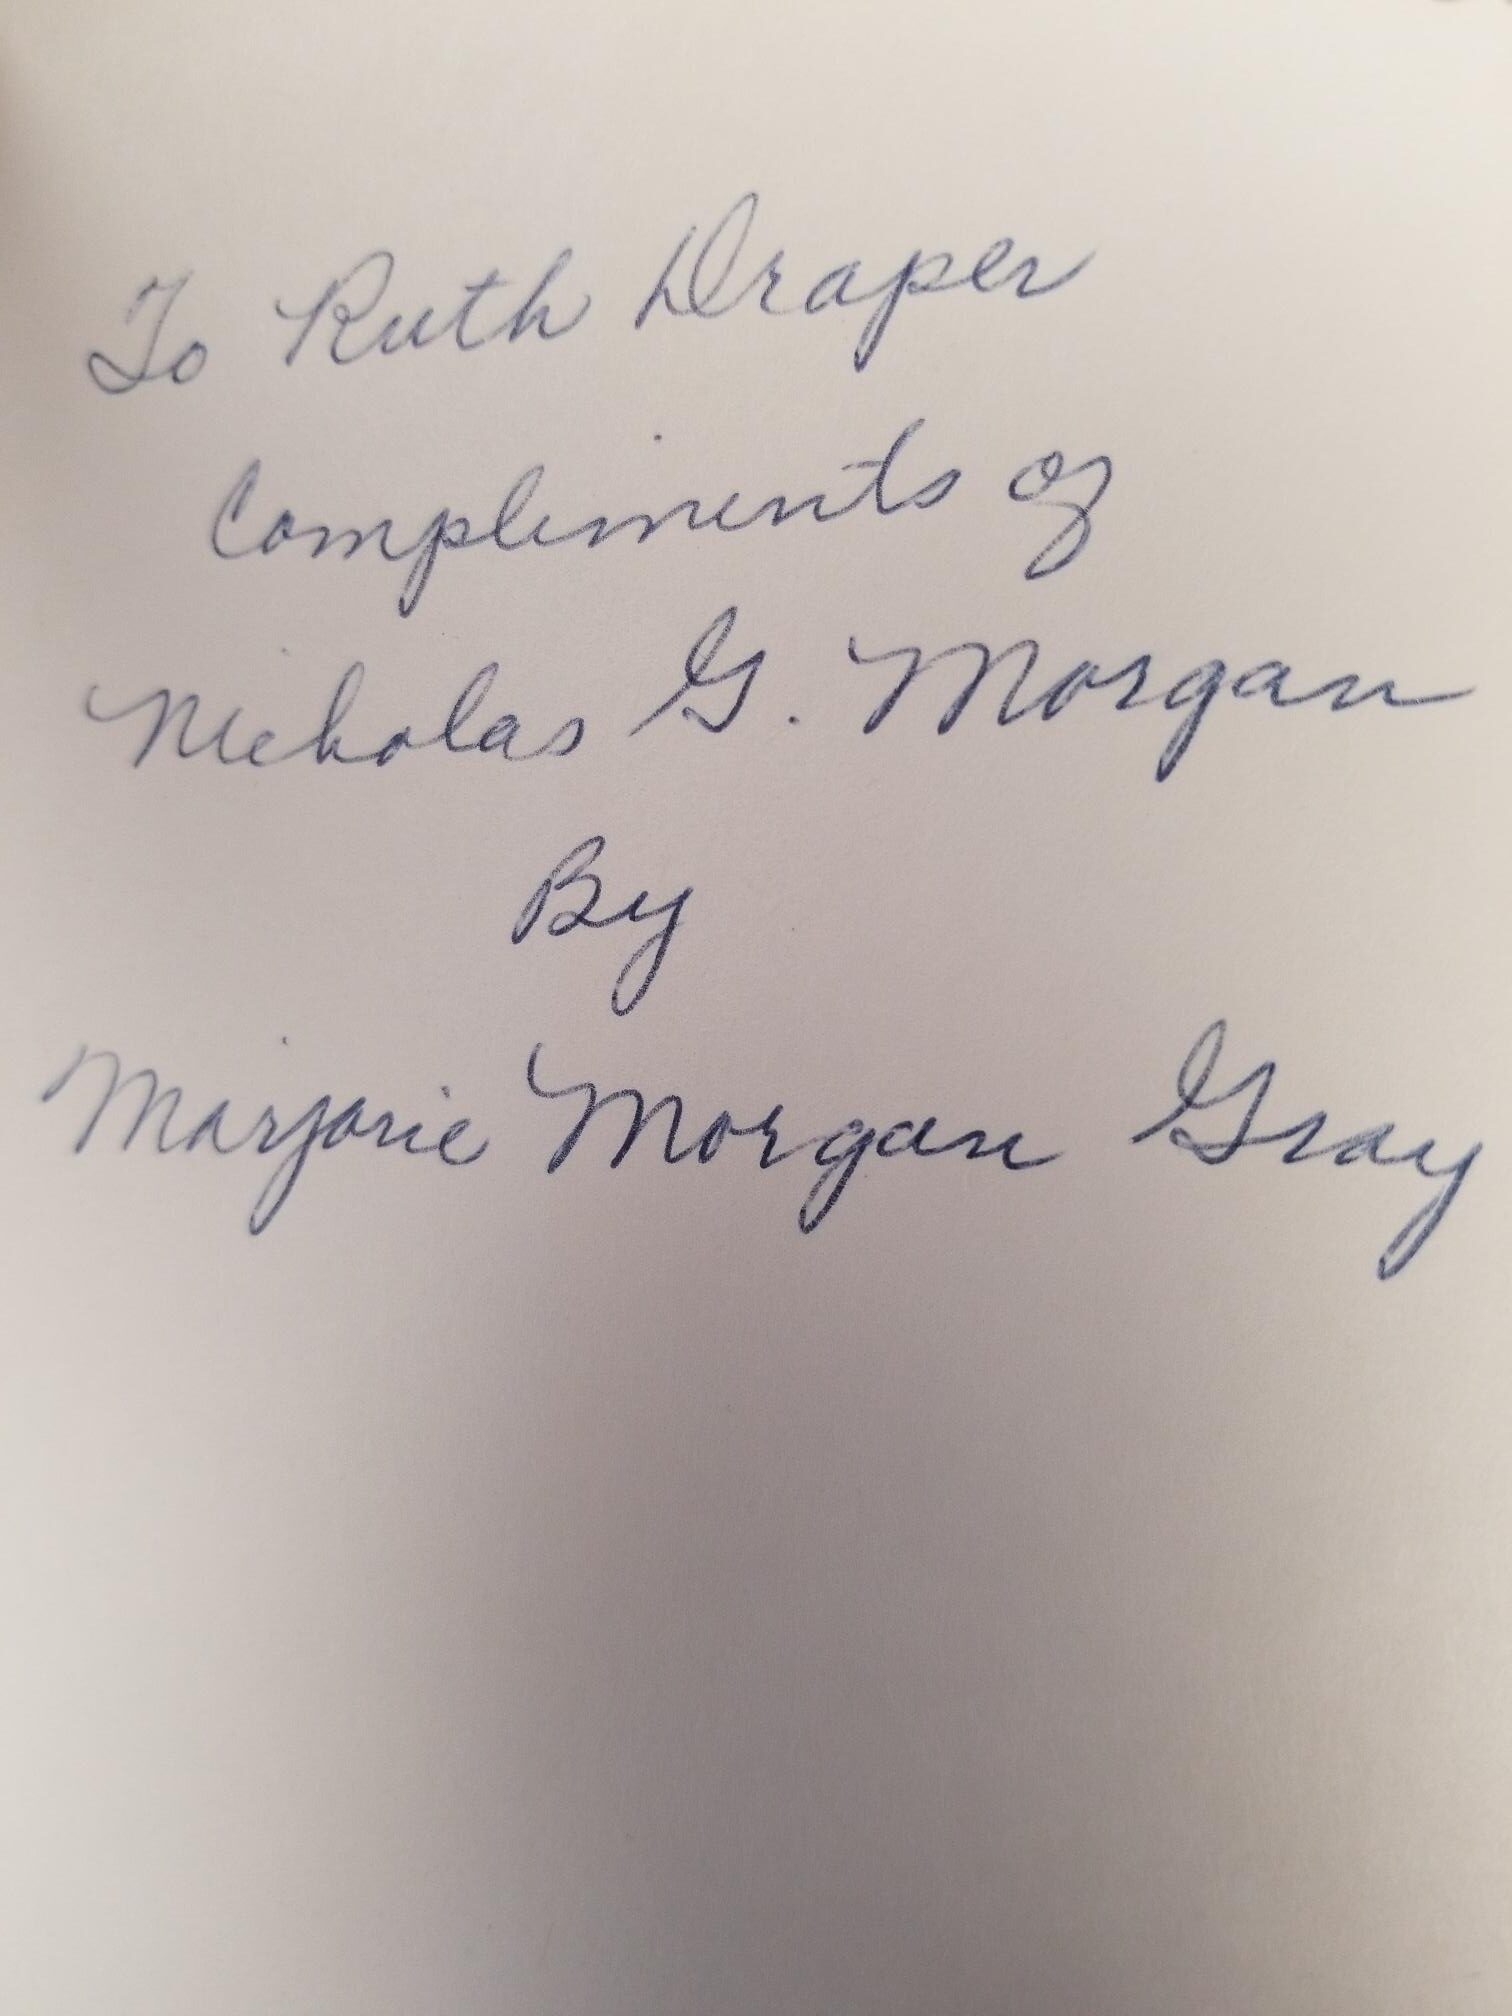 To Ruth Draper
Compliments of
Nicholas G. Morgan
By
Marjorie Morgan Gray